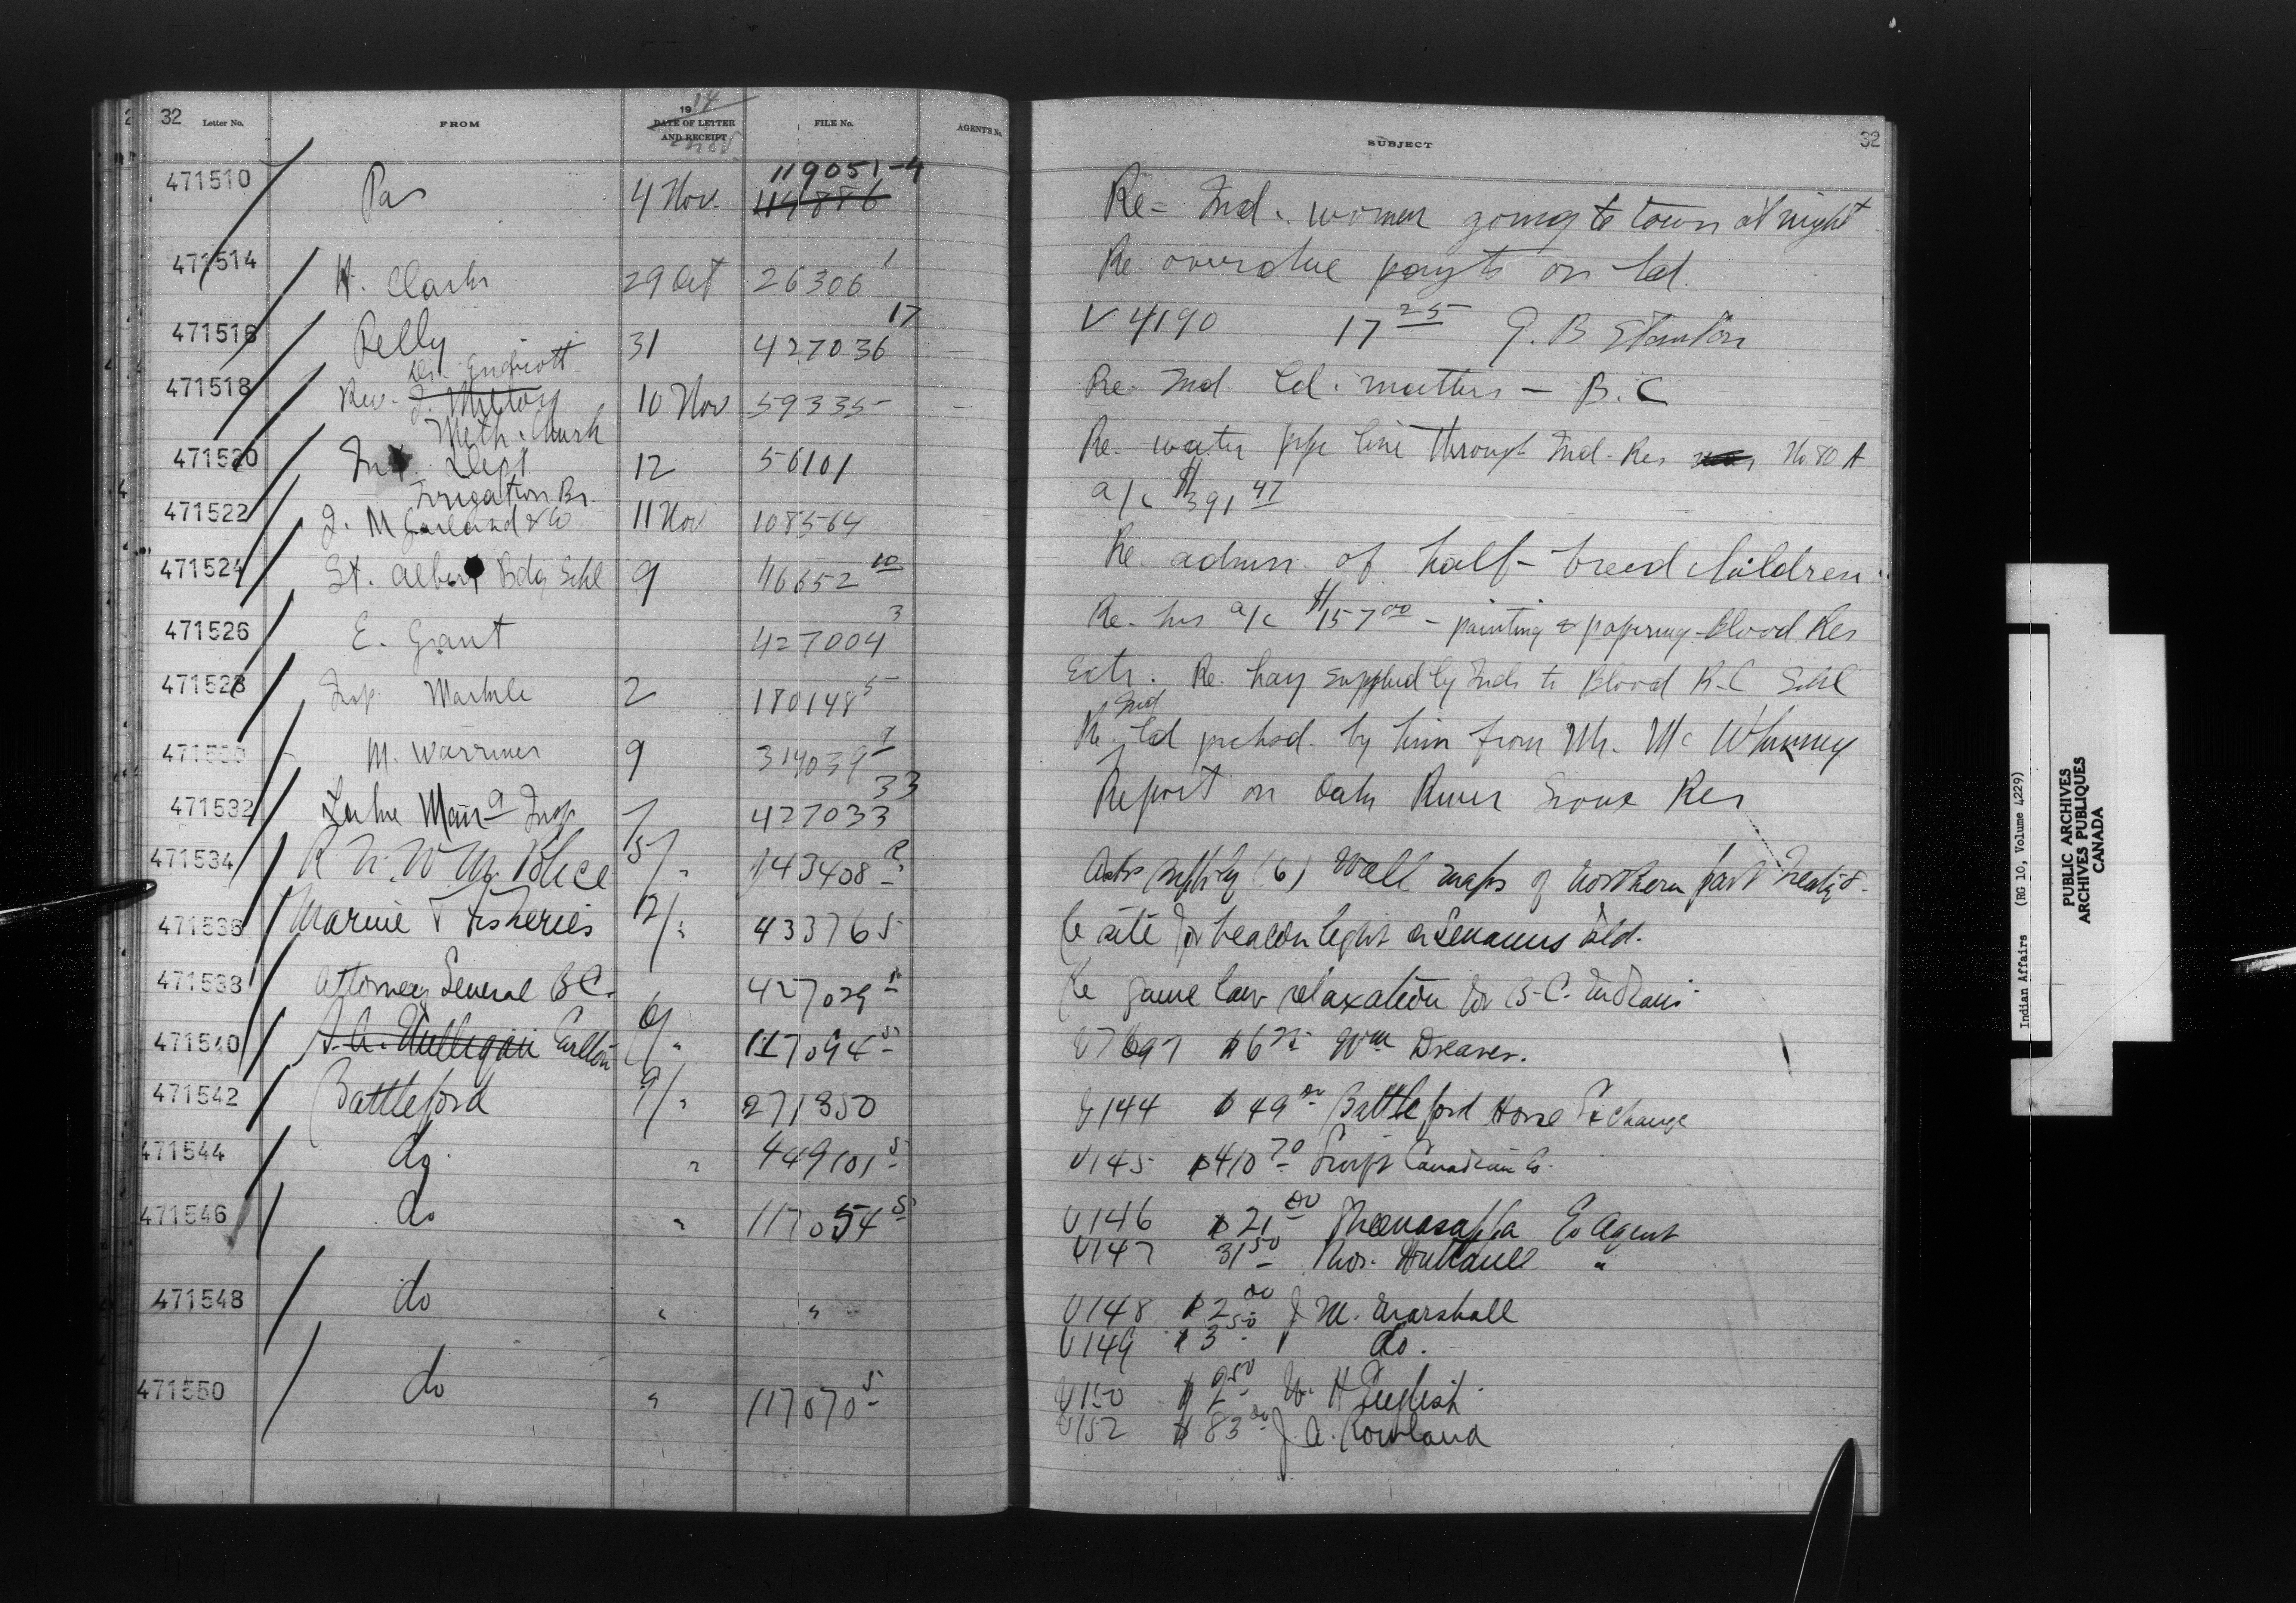 32 Letter No. FROM 1914 DATE OF LETTER AND RECEIPT FILE No. AGENTS No. SUBJECT 32
471510 Pas 4 Nov. 119051-4 114886 Re- Ind. women going to town at night
471514 H. Clarke 29 Oct 26306 1 Re overdue payts on ld.
471516 Pelly 31 427036 17 V 4190 17 25 J. B Stanton
471518 Rev. Dr. Endicott Meth. Church 10 Nov 59335 - Re- Ind. ld. matters - B.C
471520 Int. Dept Irrigation Br. 12 56101 Re- water pipe line through Ind- Res No 80 A
471522 J. M Garland & Co 11 Nov 108564 a/c $391 47
471524 St. Albert Bdg Schl 9 46652 10 Re admsn. of half-breed children.
471526 E. Grant 427004 3 Re- his a/c $157 00 - painting & papering - Blood Res
471528 Insp. Markle 2 180148 5 Extr. Re. hay supplied by Inds to Blood R.C Schl
471530 M. Warriner 9 314039 Re Ind ld purchsd. by him from Mr. Mc Whinney
471532 427033 33 Report on Oak River Sioux Res
471534 R. N. W. M. Police 5/ " 143408 Asks supply (6) Wall maps of northern part Treaty 8.
471536 Marine & Fisheries 12/ " 433765 Re site for beacon light on Senanus Isld.
471538 Attorney General B C. 427029 Re game law relaxation for B.C. Indians
471540 Carlton 6/ " 117094 5 V7697 $6 Wm Dreaver.
471542 Battleford 9/ " 271350 V144 $49 00 Battleford Horse Exchange
471544 do " 449101 5 V145 $410 70 Swift Canadian Co.
471546 do " 117054 5 V146 $21 00 Ex Agent
V147 31 50 "
471548 do " " V148 $2 00 J M. Marshall
V149 $3 50 do.
471550 do " 117070 5 V150 W. H English
V152 $83 00 J. A. Rowland
Indian Affairs (RG 10, Volume 4229)
PUBLIC ARCHIVES
ARCHIVES PUBLIQUES
CANADA